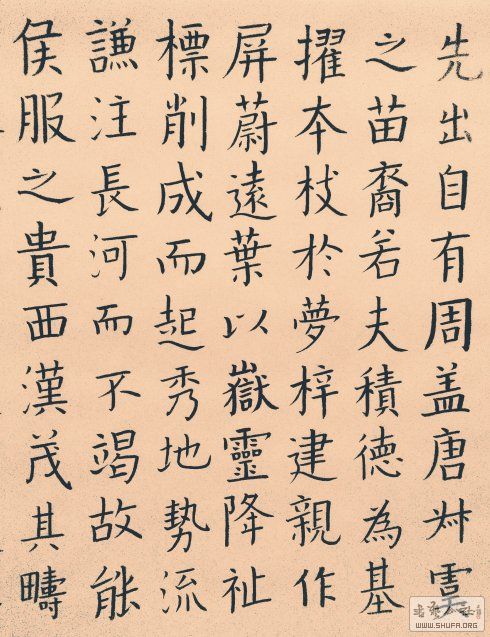 先出自有周盖唐叔虞
之苗裔若夫積德為基
擢本枝於夢梓建親作
屏蔚遠葉以嶽靈降祉
標削成而起秀地勢流
謙注長河而不竭故能
侯服之貴西漢茂其疇
WWW.SHUFA.ORG